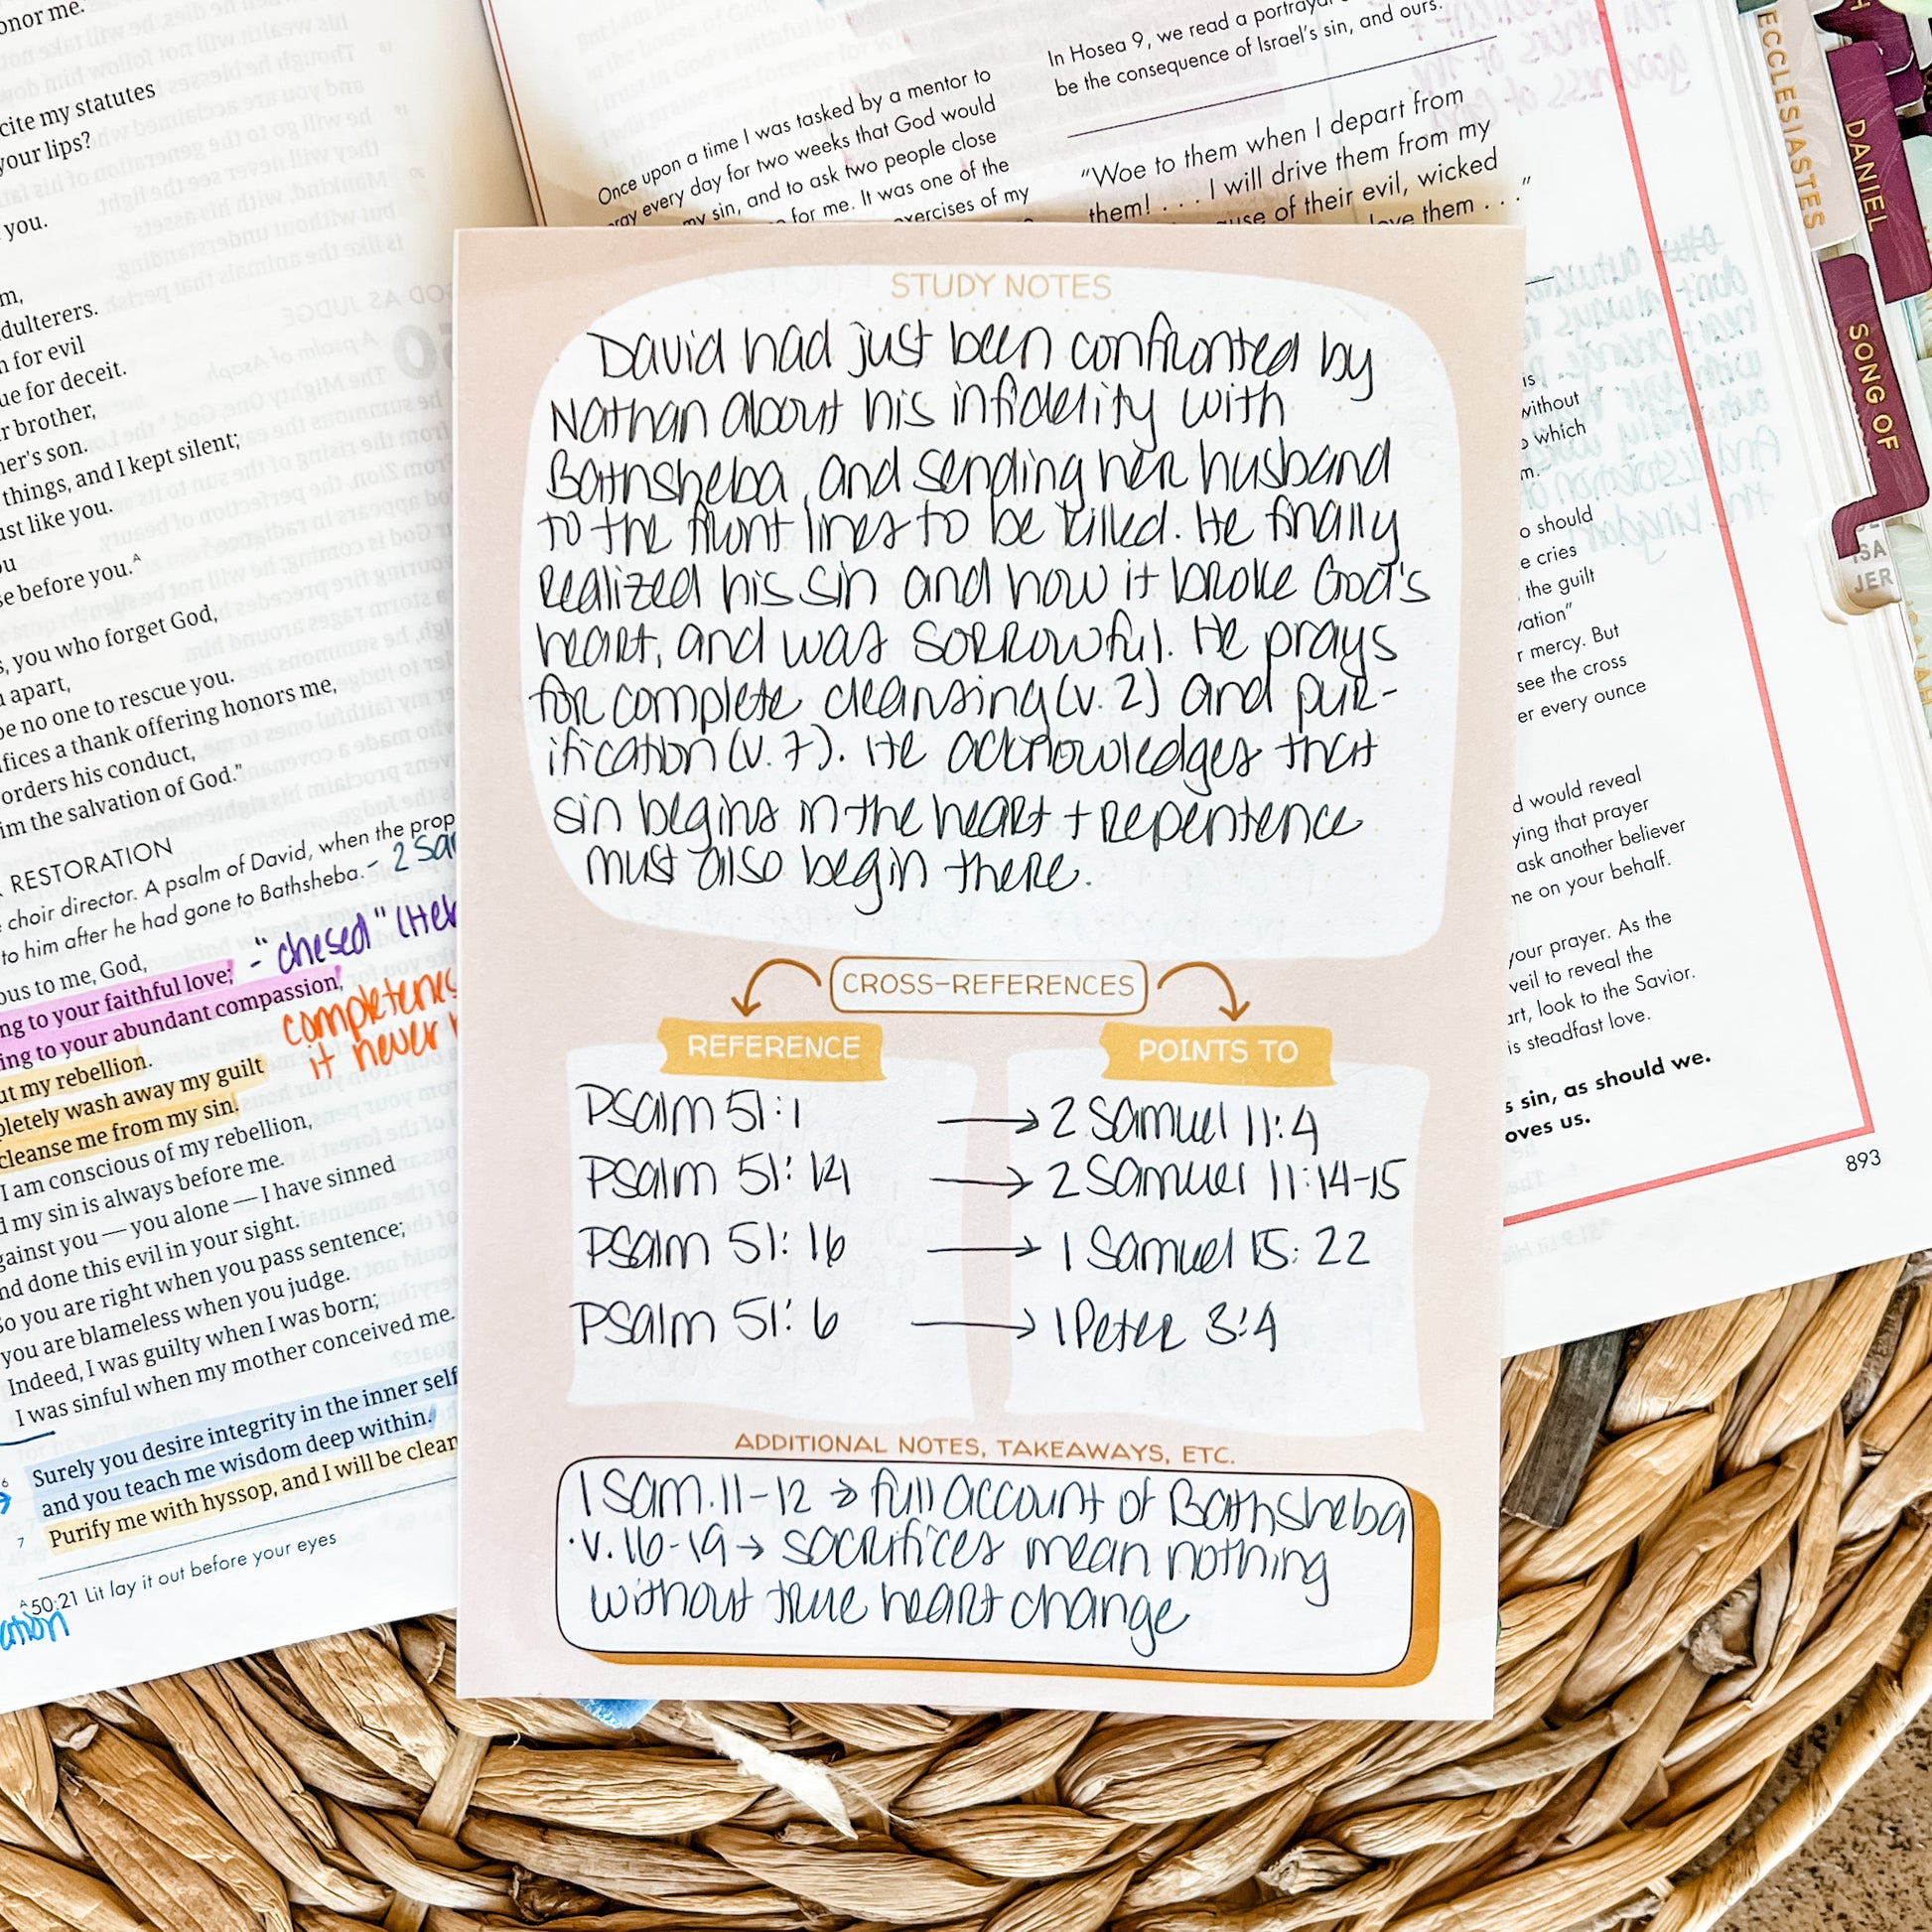 onor me.
cite my statutes
your lips?
you.
dulterers.
n for evil
ue for deceit.
r brother,
her's son.
things, and I kept silent;
ust like you.
se before you.ᴬ
s, you who forget God,
u apart,
be no one to rescue you.
ifices a thank offering honors me,
orders his conduct,
im the salvation of God."
RESTORATION
choir director. A psalm of David, when the prop
to him after he had gone to Bathsheba. - 2 Sam
ous to me, God,
ng to your faithful love; - "chesed" (Heb
ing to your abundant compassion,
completenes
it never
ut my rebellion.
pletely wash away my guilt
cleanse me from my sin.
I am conscious of my rebellion,
d my sin is always before me.
gainst you — you alone — I have sinned
nd done this evil in your sight.
So you are right when you pass sentence;
you are blameless when you judge.
Indeed, I was guilty when I was born;
I was sinful when my mother conceived me.
6 Surely you desire integrity in the inner self
and you teach me wisdom deep within.
7 Purify me with hyssop, and I will be clean
ᴬ50:21 Lit lay it out before your eyes
ation
Once upon a time I was tasked by a mentor to
pray every day for two weeks that God would
my sin, and to ask two people close
for me. It was one of the
exercises of my
In Hosea 9, we read a portrayal
be the consequence of Israel's sin, and ours.
"Woe to them when I depart from
them! . . . I will drive them from my
ause of their evil, wicked
love them . . ."
STUDY NOTES
David had just been confronted by
Nathan about his infidelity with
Bathsheba, and sending her husband
to the front lines to be killed. He finally
realized his sin and how it broke God's
heart, and was sorrowful. He prays
for complete cleansing (v. 2) and pur-
ification (v. 7). He acknowledges that
sin begins in the heart + repentence
must also begin there.
CROSS-REFERENCES
REFERENCE POINTS TO
Psalm 51:1 → 2 Samuel 11:4
Psalm 51:14 → 2 Samuel 11:14-15
Psalm 51:16 → 1 Samuel 15:22
Psalm 51:6 → 1 Peter 3:4
ADDITIONAL NOTES, TAKEAWAYS, ETC.
1 Sam. 11-12 → full account of Bathsheba
· v. 16-19 → sacrifices mean nothing
without true heart change
is
without
which
m.
o should
e cries
the guilt
vation"
r mercy. But
see the cross
er every ounce
d would reveal
ying that prayer
ask another believer
me on your behalf.
your prayer. As the
veil to reveal the
art, look to the Savior.
is steadfast love.
s sin, as should we.
oves us.
893
ECCLESIASTES
DANIEL
SONG OF
ISA
JER